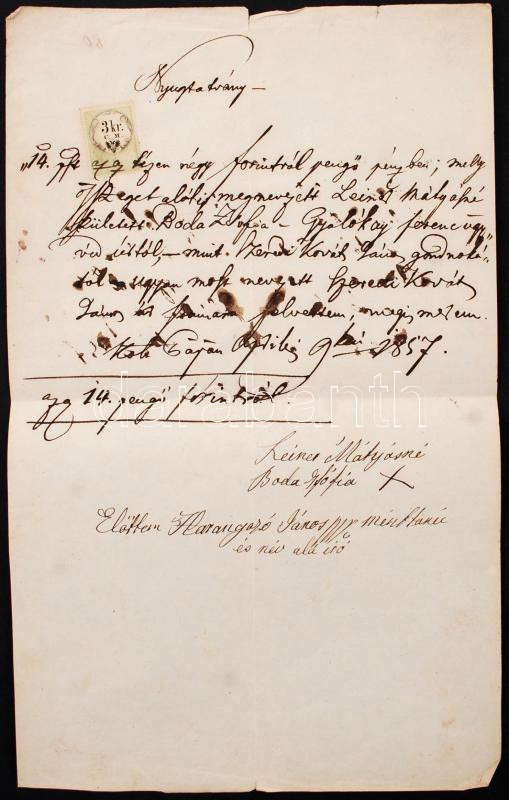 60
Nyugtatvány
3 kr.
C. M.
„14. pft azaz tizen négy forintról pengő pénzben, mely
öszeget alólis megnevezett Leiner Mátyásné
született Boda Zsófia – Gyalókay ferencz ügy
véd úrtól, – mint Szeredi Kovát János gondnoká
tól ugyan most nevezett Szeredi Kovát
János úr számára felvettem,
Költ Tápán Aprilis 9kén 1857.
azaz 14. pengő forintról
darabanth
Leiner Mátyásné
Boda Zsófia X
Előttem Harangozó János
és név alá író